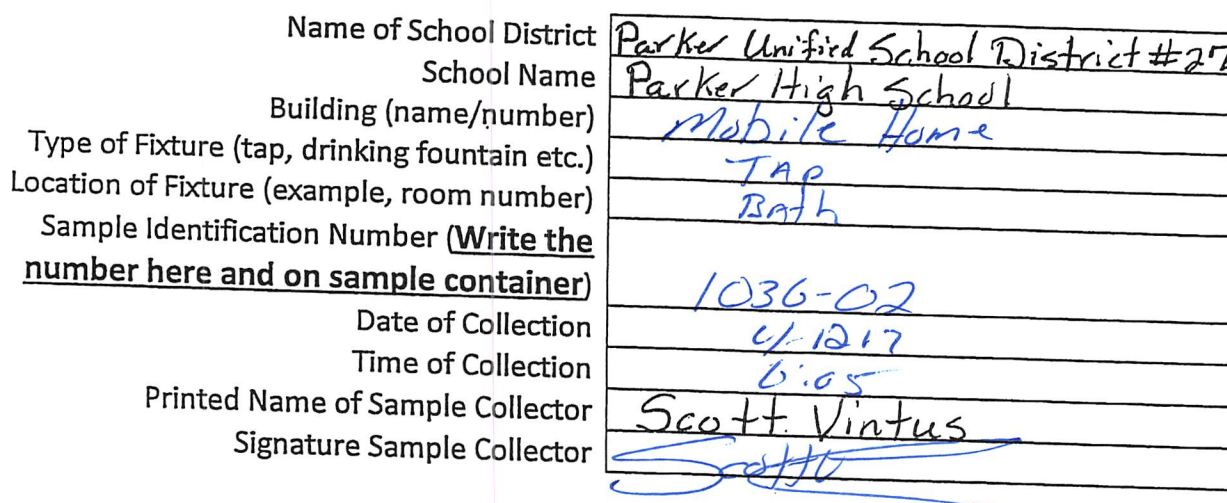 Name of School District Parker Unified School District #27
School Name Parker High School
Building (name/number) Mobile Home
Type of Fixture (tap, drinking fountain etc.) TAP
Location of Fixture (example, room number) Bath
Sample Identification Number (Write the
number here and on sample container) 1036-02
Date of Collection 4-12 17
Time of Collection 6:05
Printed Name of Sample Collector Scott Vintus
Signature Sample Collector